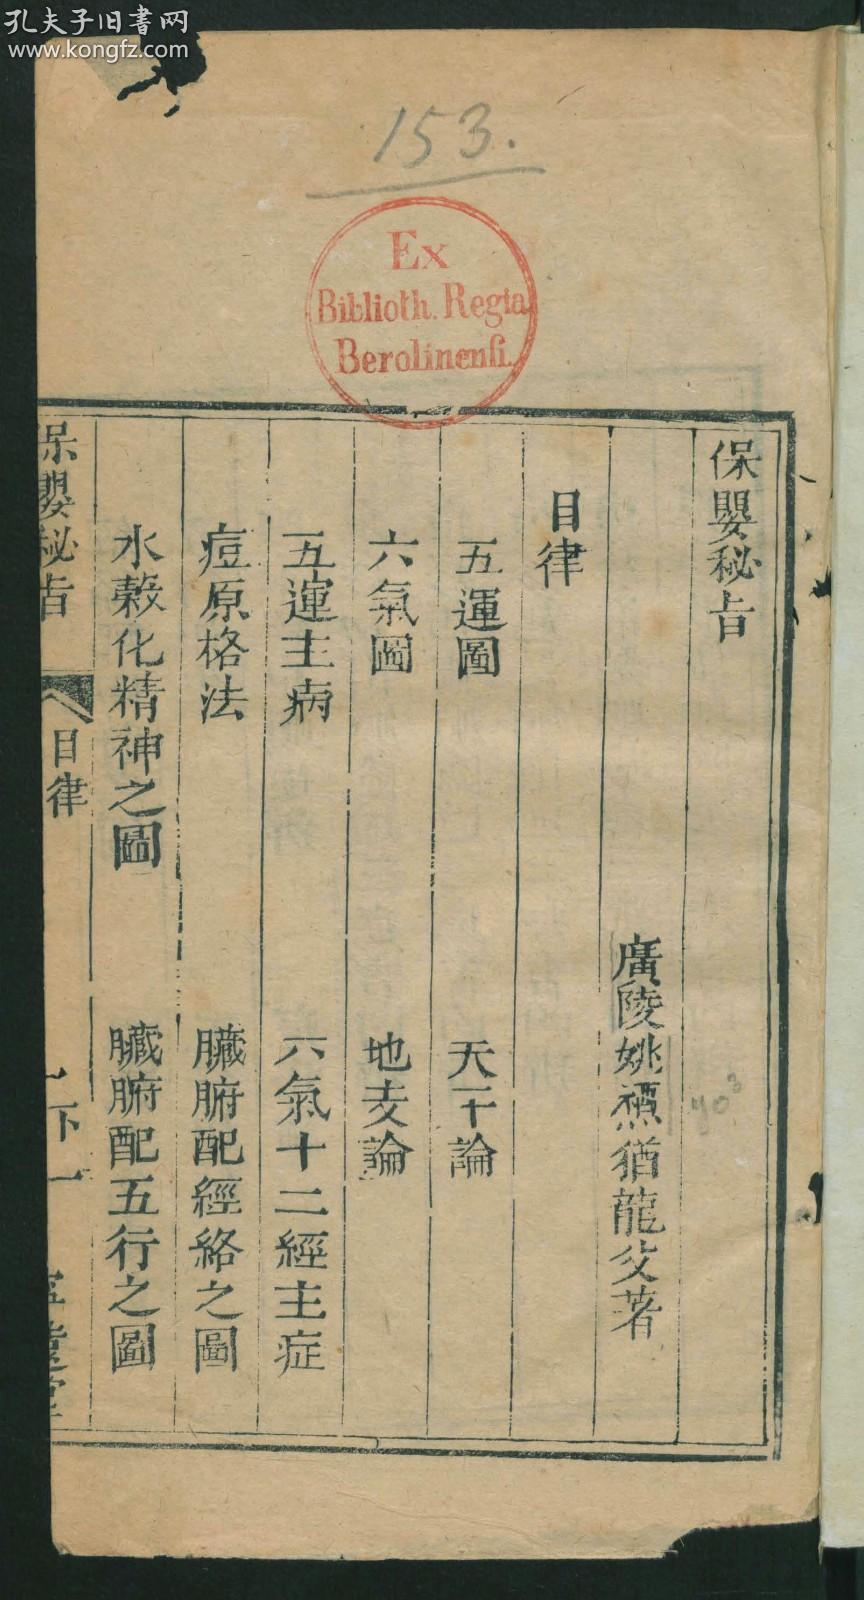 孔夫子旧书网
www.kongfz.com
153.
Ex
Biblioth. Regia
Berolinensi.
保嬰秘旨
廣陵姚 猶龍父著
目律
五運圖 天干論
六氣圖 地支論
五運主病 六氣十二經主症
痘原格法 臟腑配經絡之圖
水穀化精神之圖 臟腑配五行之圖
保嬰秘旨 目律 下一